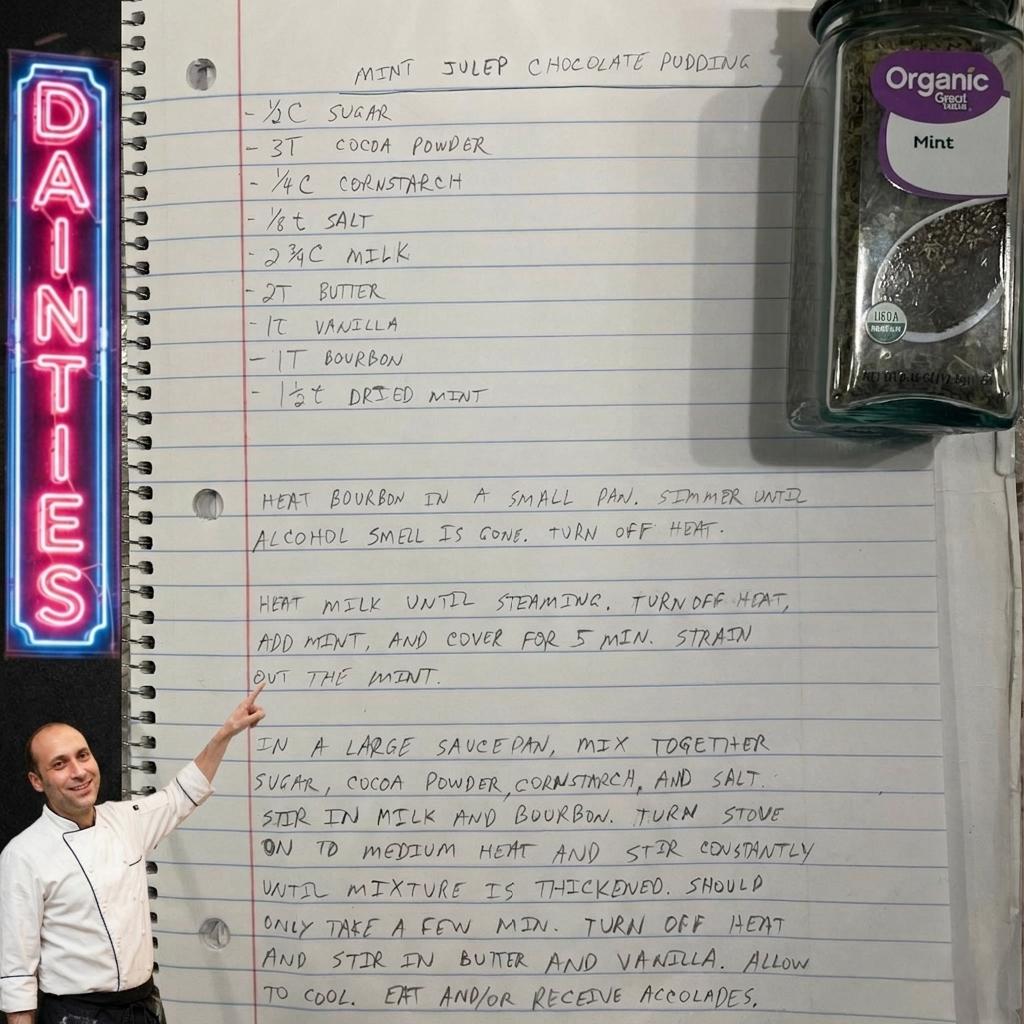 DAINTIES
MINT JULEP CHOCOLATE PUDDING
- ½ C SUGAR
- 3T COCOA POWDER
- ¼ C CORNSTARCH
- ⅛ t SALT
- 2 ¾ C MILK
- 2T BUTTER
- 1T VANILLA
- 1T BOURBON
- 1 ½ t DRIED MINT
HEAT BOURBON IN A SMALL PAN. SIMMER UNTIL
ALCOHOL SMELL IS GONE. TURN OFF HEAT.
HEAT MILK UNTIL STEAMING. TURN OFF HEAT,
ADD MINT, AND COVER FOR 5 MIN. STRAIN
OUT THE MINT.
IN A LARGE SAUCEPAN, MIX TOGETHER
SUGAR, COCOA POWDER, CORNSTARCH, AND SALT.
STIR IN MILK AND BOURBON. TURN STOVE
ON TO MEDIUM HEAT AND STIR CONSTANTLY
UNTIL MIXTURE IS THICKENED. SHOULD
ONLY TAKE A FEW MIN. TURN OFF HEAT
AND STIR IN BUTTER AND VANILLA. ALLOW
TO COOL. EAT AND/OR RECEIVE ACCOLADES.
Organic
Great
Mint